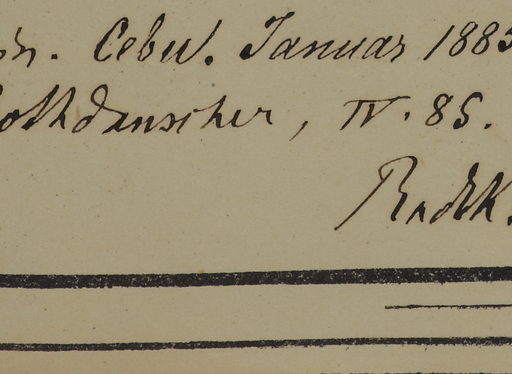 Cebu. Januar 1885
Rothdauscher, IV. 85.
Radlk.